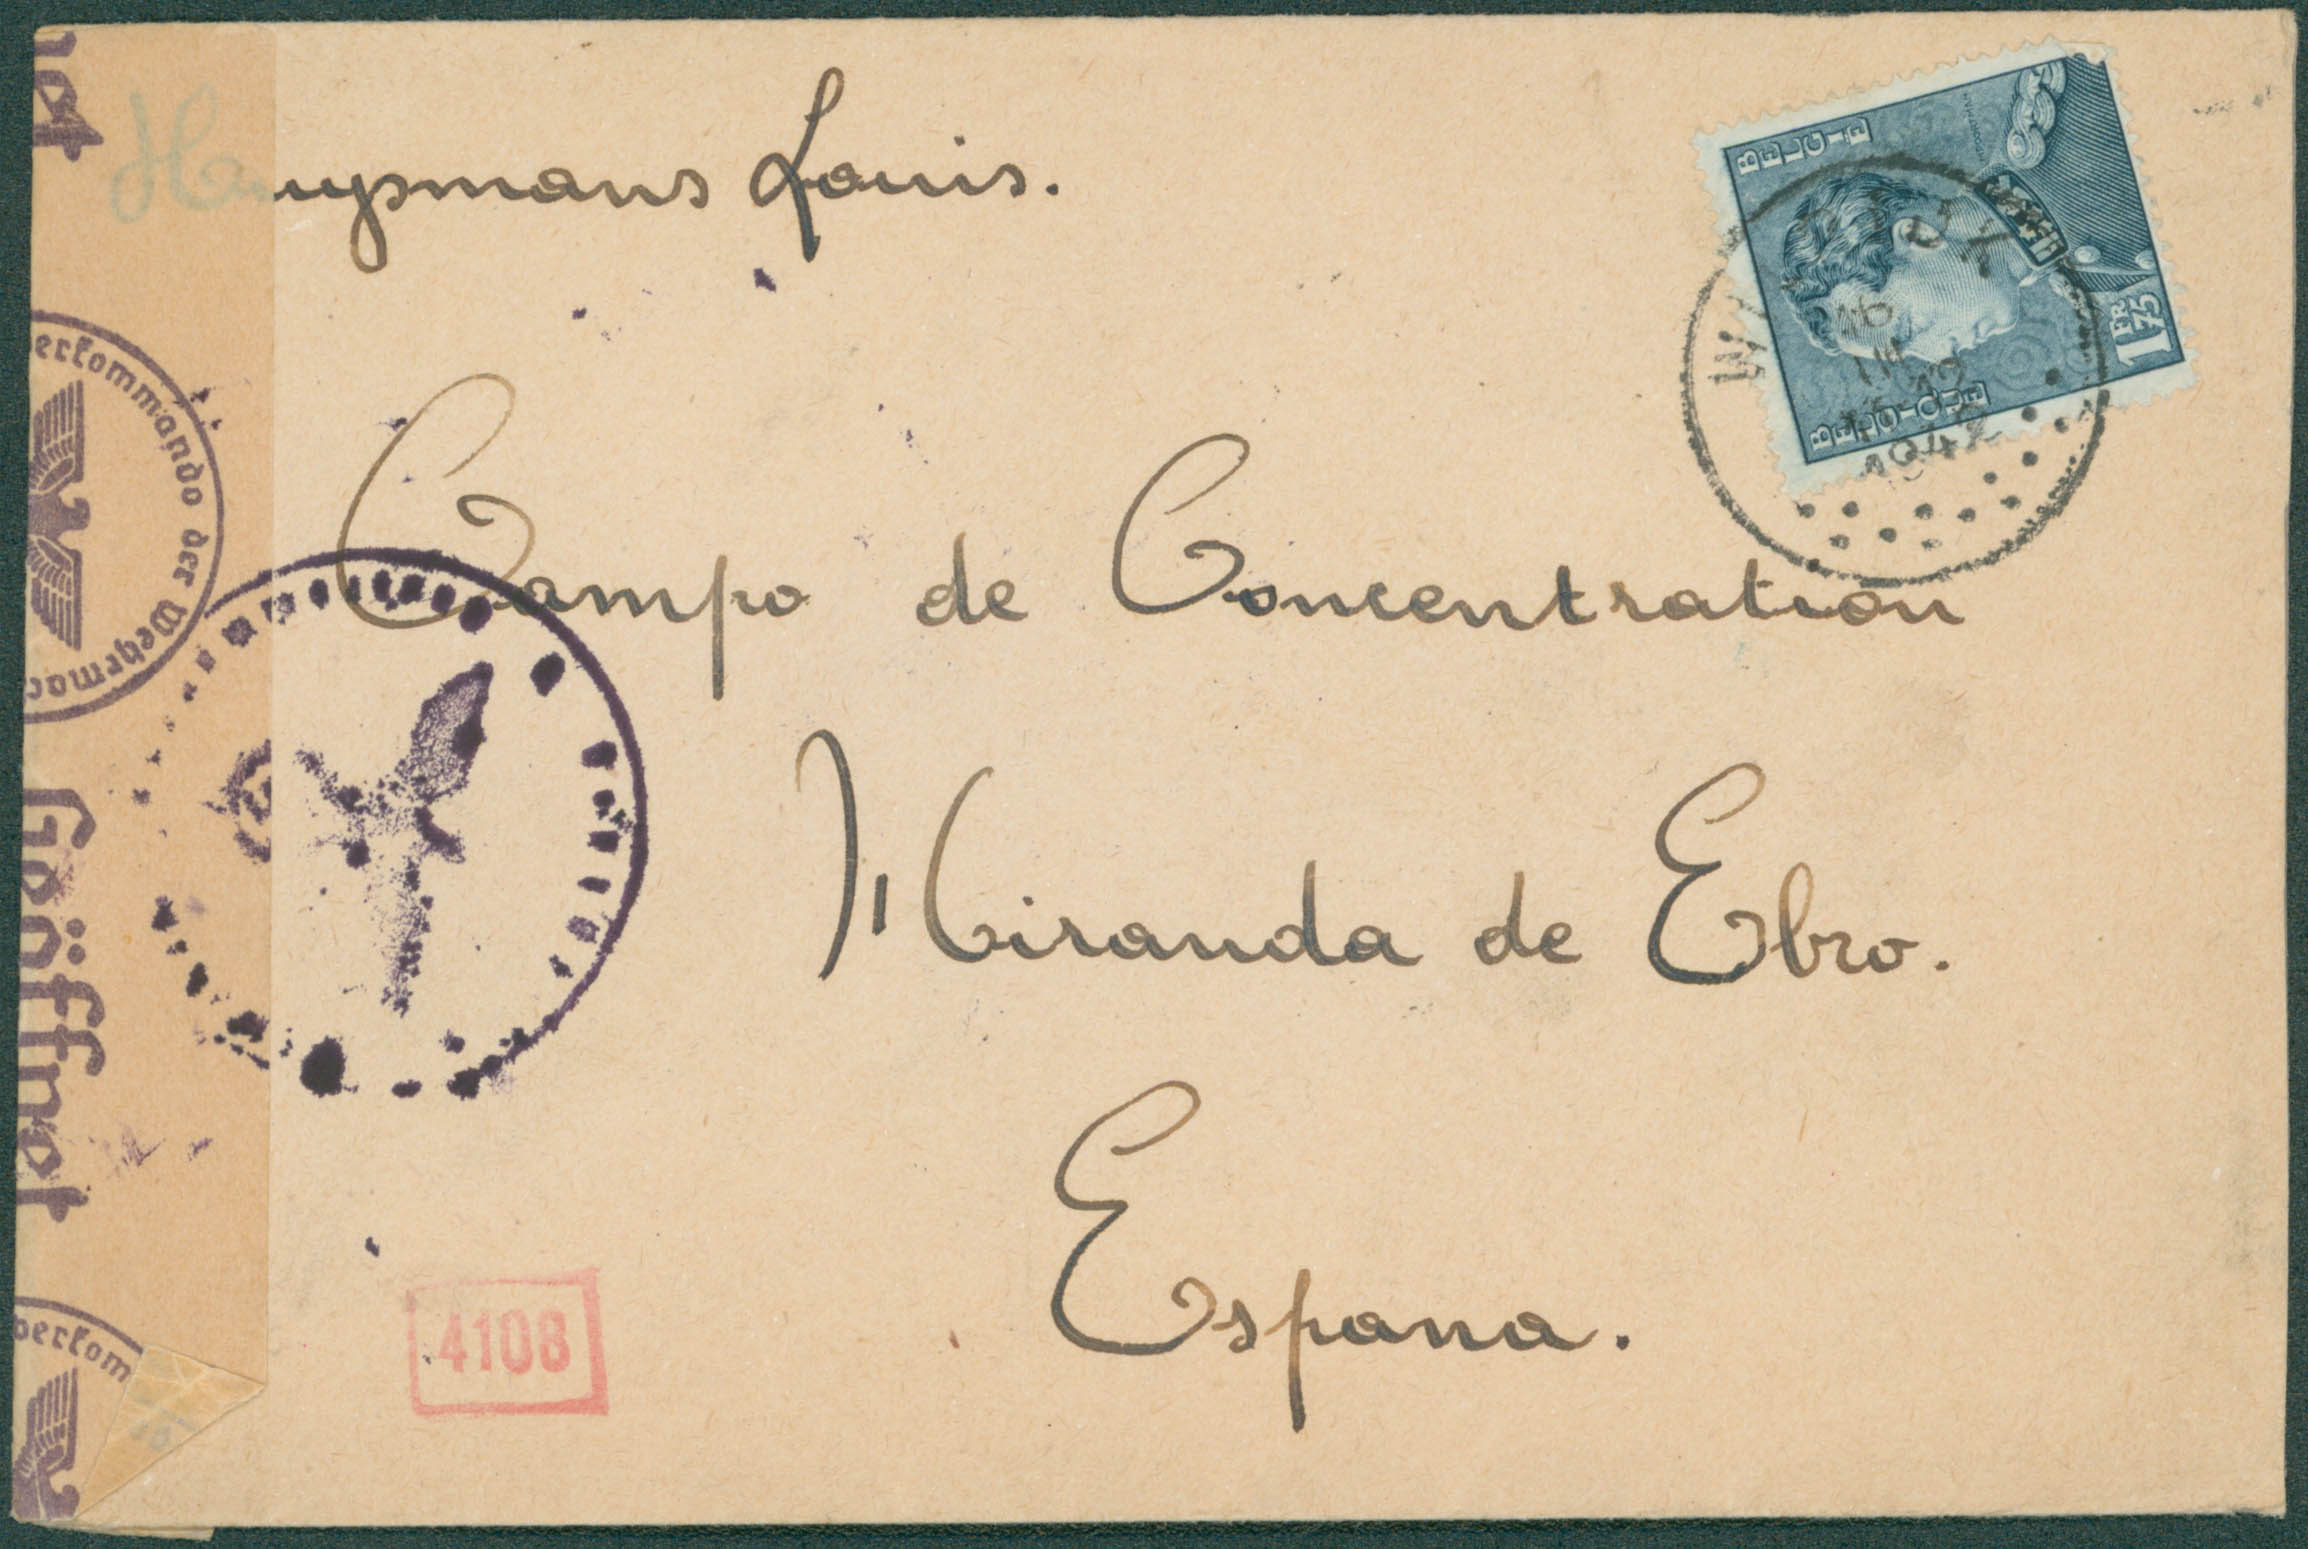 Hauysmans Louis.
Campo de Concentration
Miranda de Ebro.
Espana.
BELGIE
BELGIQUE
1 FR 75
16
1942
Oberkommando der Wehrmac
Geöffnet
net
berkom
4108